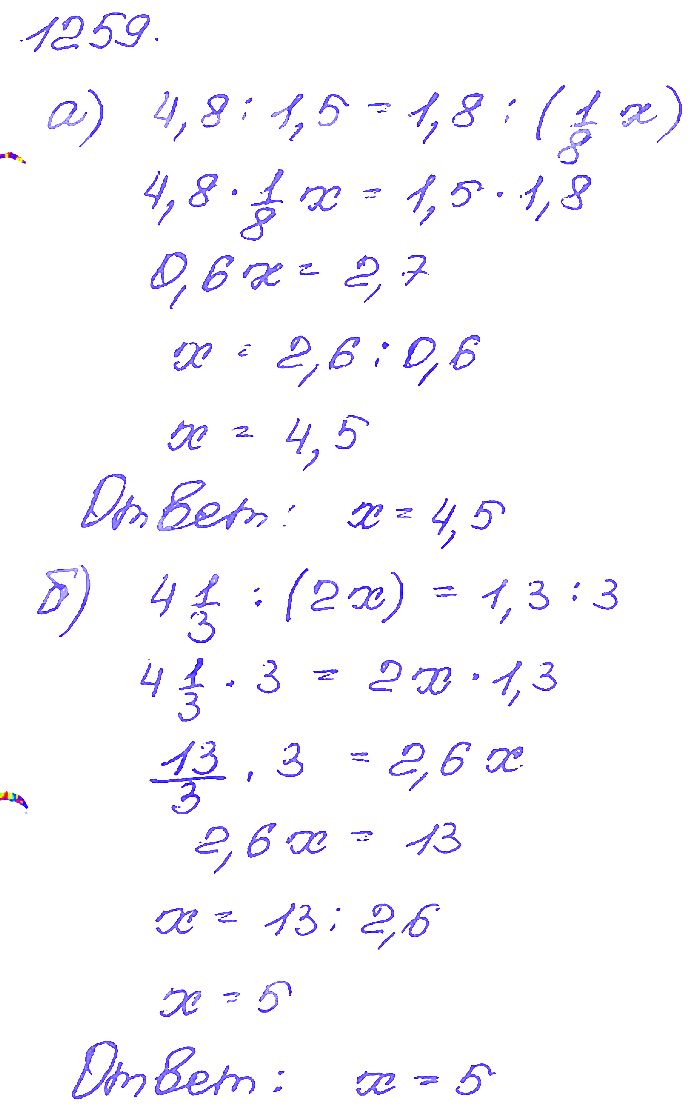 1259.
а) 4,8 : 1,5 = 1,8 : (1/8 x)
4,8 · 1/8 x = 1,5 · 1,8
0,6x = 2,7
x = 2,6 : 0,6
x = 4,5
Ответ: x = 4,5
б) 4 1/3 : (2x) = 1,3 : 3
4 1/3 · 3 = 2x · 1,3
13/3 · 3 = 2,6x
2,6x = 13
x = 13 : 2,6
x = 5
Ответ: x = 5